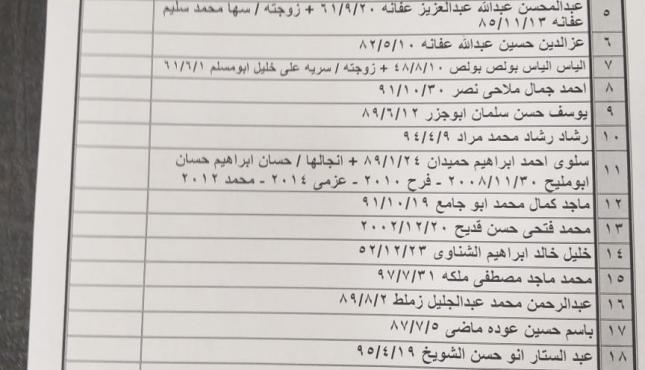 ٥ عبدالمحسن عبدالله عبدالعزيز عفانه ٦١/٩/٢٠ + زوجته / سها محمد سليم
عفانه ٨٥/١١/١٣
٦ عزالدين حسين عبدالله عفانه ٨٢/٥/١٠
٧ الياس الياس بولص بولص ٤٨/٨/١٠ + زوجته / سريه على خليل ابومسلم ٦١/٦/١
٨ احمد جمال ملاحي نصر ٩١/١٠/٣٠
٩ يوسف حسن سلمان ابوجزر ٨٩/٦/١٢
١٠ رشاد رشاد محمد مراد ٩٤/٤/٩
١١ سلوى احمد ابراهيم حميدان ٨٩/١/٢٤ + انجالها / حسان ابراهيم حسان
ابومليح ٢٠٠٨/١١/٣٠ - فرح ٢٠١٠ - عزمى ٢٠١٤ - محمد ٢٠١٢
١٢ ماجد كمال محمد ابو جامع ٩١/١٠/١٩
١٣ محمد فتحى حسن قديح ٢٠٠٢/١٢/٢٠
١٤ خليل خالد ابراهيم الشناوى ٥٢/١٢/٢٣
١٥ محمد ماجد مصطفى ملكه ٩٧/٧/٣١
١٦ عبدالرحمن محمد عبدالجليل زملط ٨٩/٨/٢
١٧ باسم حسين عوده ماضى ٨٧/٧/٥
١٨ عبد الستار انو حسن الشويخ ٩٥/٤/١٩